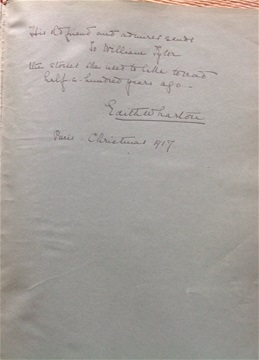 His friend and admirer sends
to William Tyler
the stories she used to like to read
half-a-hundred years ago -
Edith Wharton
Paris - Christmas 1917.